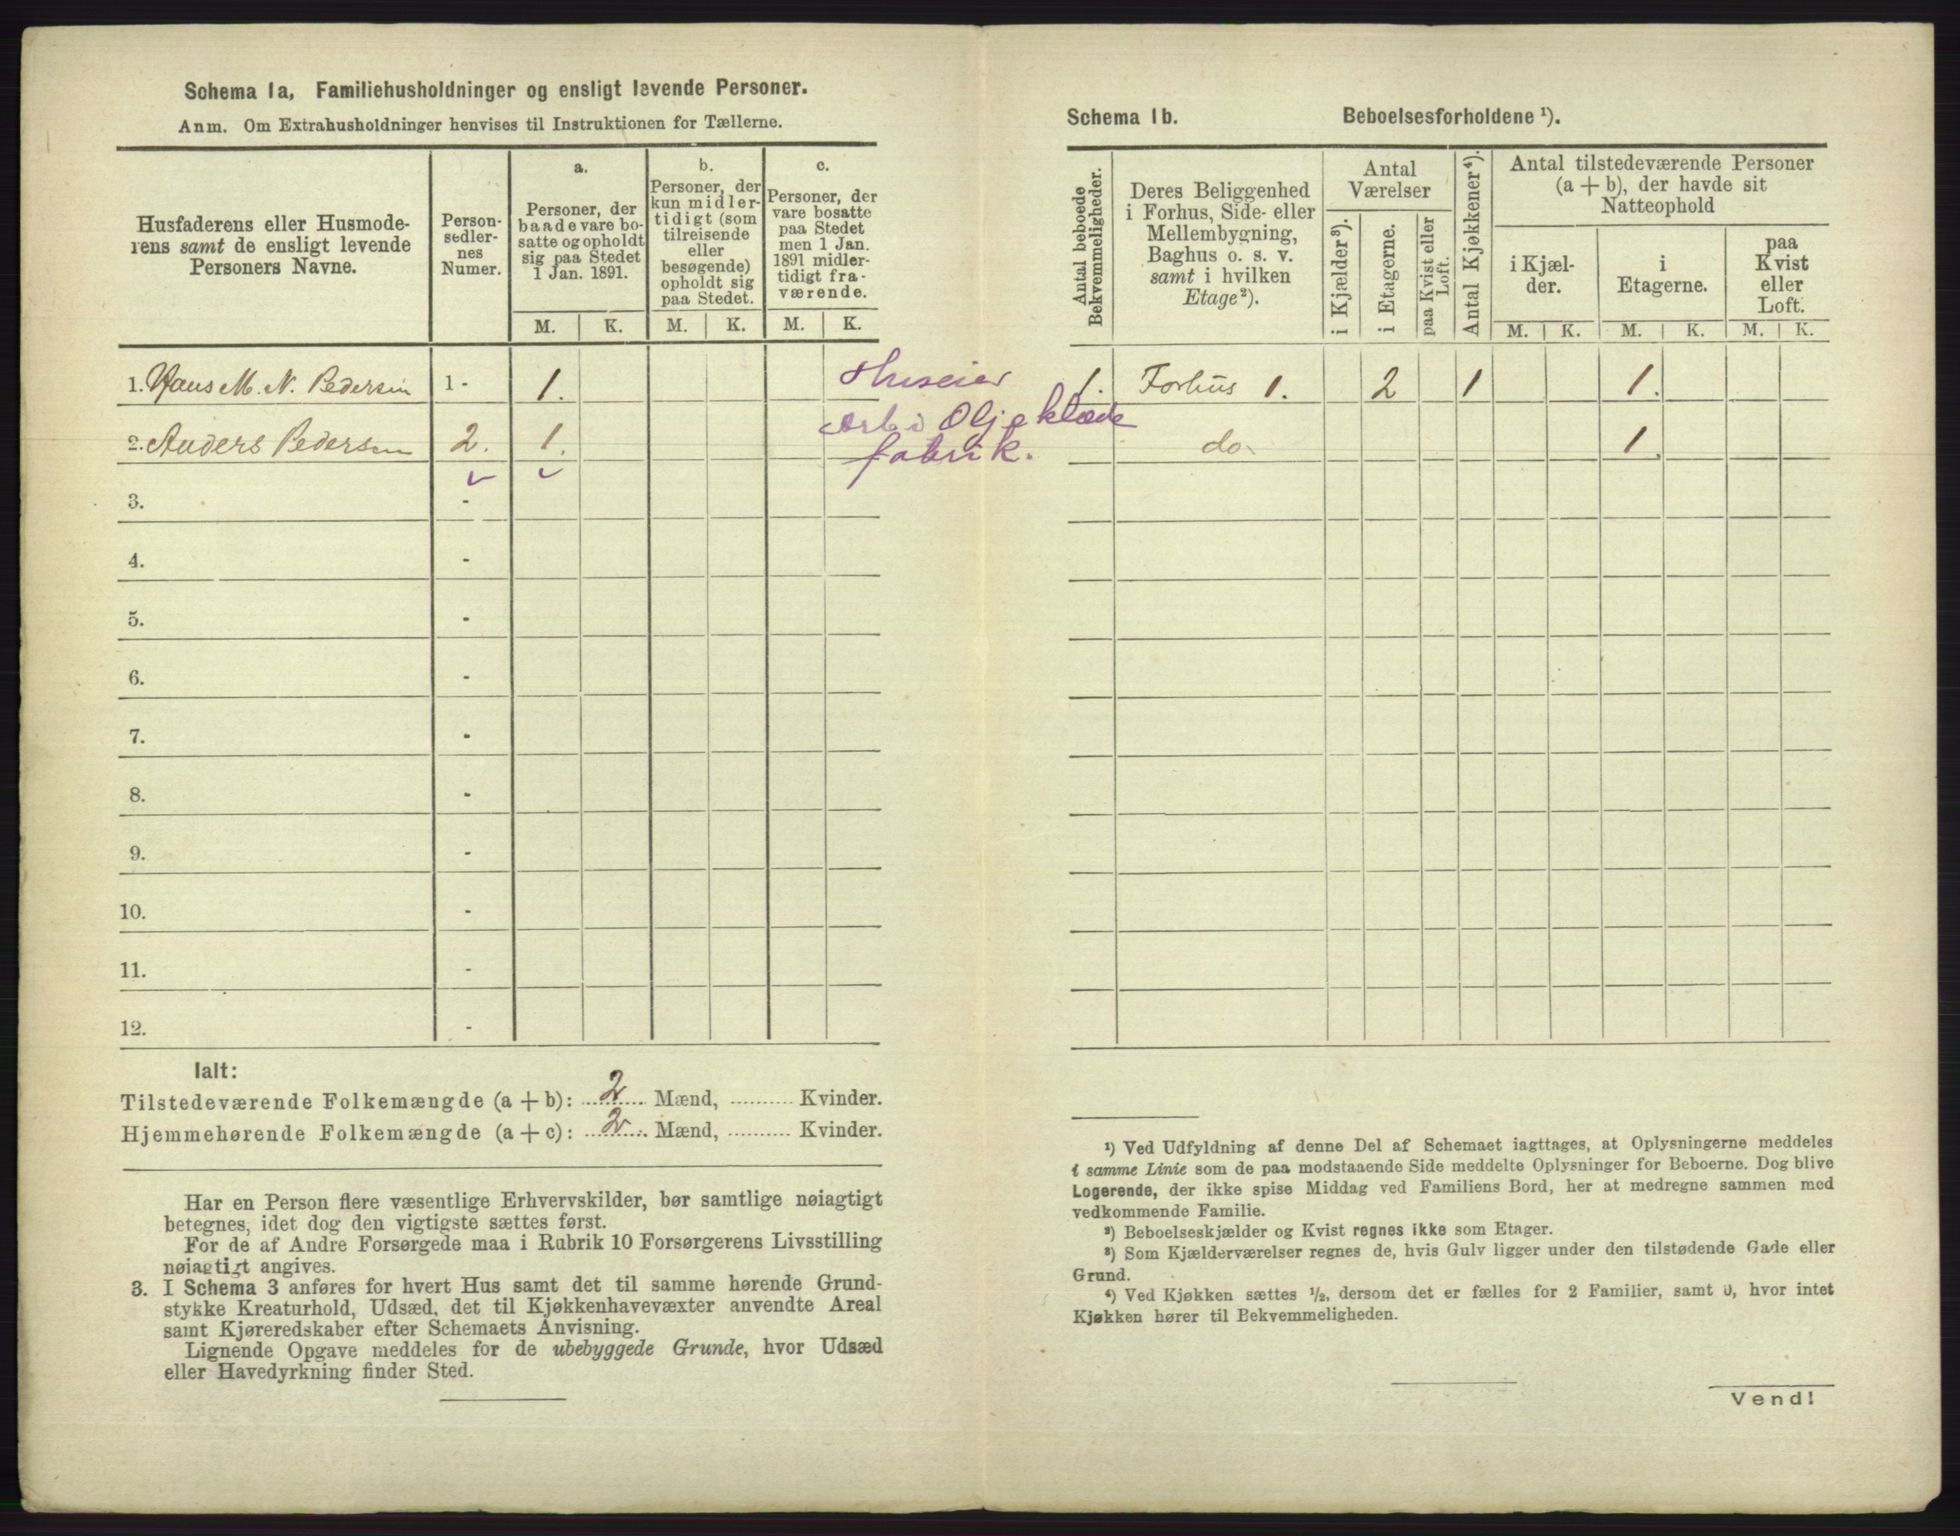 Schema 1a, Familiehusholdninger og ensligt levende Personer.
Anm. Om Extrahusholdninger henvises til Instruktionen for Tællerne.
Husfaderens eller Husmode-
rens samt de ensligt levende
Personers Navne.
Person-
sedler-
nes
Numer.
a.
Personer, der
baade vare bo-
satte og opholdt
sig paa Stedet
1 Jan. 1891.
b.
Personer, der
kun midler-
tidigt (som
tilreisende
eller
besøgende)
opholdt sig
paa Stedet.
c.
Personer, der
vare bosatte
paa Stedet
men 1 Jan.
1891 midler-
tidigt fra-
værende.
M. K. M. K. M. K.
1. Hans M. N. Pedersen 1 - 1. Huseier
2. Anders Pedersen 2. 1. Arb i Oljeklæde
fabrik.
3. -
4. -
5. -
6. -
7. -
8. -
9. -
10. -
11. -
12. -
Ialt:
Tilstedeværende Folkemængde (a + b): 2 Mænd, .......... Kvinder.
Hjemmehørende Folkemængde (a + c): 2 Mænd, .......... Kvinder.
Har en Person flere væsentlige Erhvervskilder, bør samtlige nøiagtigt
betegnes, idet dog den vigtigste sættes først.
For de af Andre Forsørgede maa i Rubrik 10 Forsørgerens Livsstilling
nøiagtigt angives.
3. I Schema 3 anføres for hvert Hus samt det til samme hørende Grund-
stykke Kreaturhold, Udsæd, det til Kjøkkenhavevæxter anvendte Areal
samt Kjøreredskaber efter Schemaets Anvisning.
Lignende Opgave meddeles for de ubebyggede Grunde, hvor Udsæd
eller Havedyrkning finder Sted.
Schema 1b. Beboelsesforholdene ¹).
Antal beboede
Bekvemmeligheder.
Deres Beliggenhed
i Forhus, Side- eller
Mellembygning,
Baghus o. s. v.
samt i hvilken
Etage²).
Antal
Værelser
i Kjælder³).
i Etagerne.
paa Kvist eller
Loft.
Antal Kjøkkener⁴).
Antal tilstedeværende Personer
(a + b), der havde sit
Natteophold
i Kjæl-
der.
i
Etagerne.
paa
Kvist
eller
Loft.
M. K. M. K. M. K.
1. Forhus 1. 2 1 1.
do. 1.
¹) Ved Udfyldning af denne Del af Schemaet iagttages, at Oplysningerne meddeles
i samme Linie som de paa modstaaende Side meddelte Oplysninger for Beboerne. Dog blive
Logerende, der ikke spise Middag ved Familiens Bord, her at medregne sammen med
vedkommende Familie.
²) Beboelseskjælder og Kvist regnes ikke som Etager.
³) Som Kjælderværelser regnes de, hvis Gulv ligger under den tilstødende Gade eller
Grund.
⁴) Ved Kjøkken sættes ½, dersom det er fælles for 2 Familier, samt 0, hvor intet
Kjøkken hører til Bekvemmeligheden.
Vend!